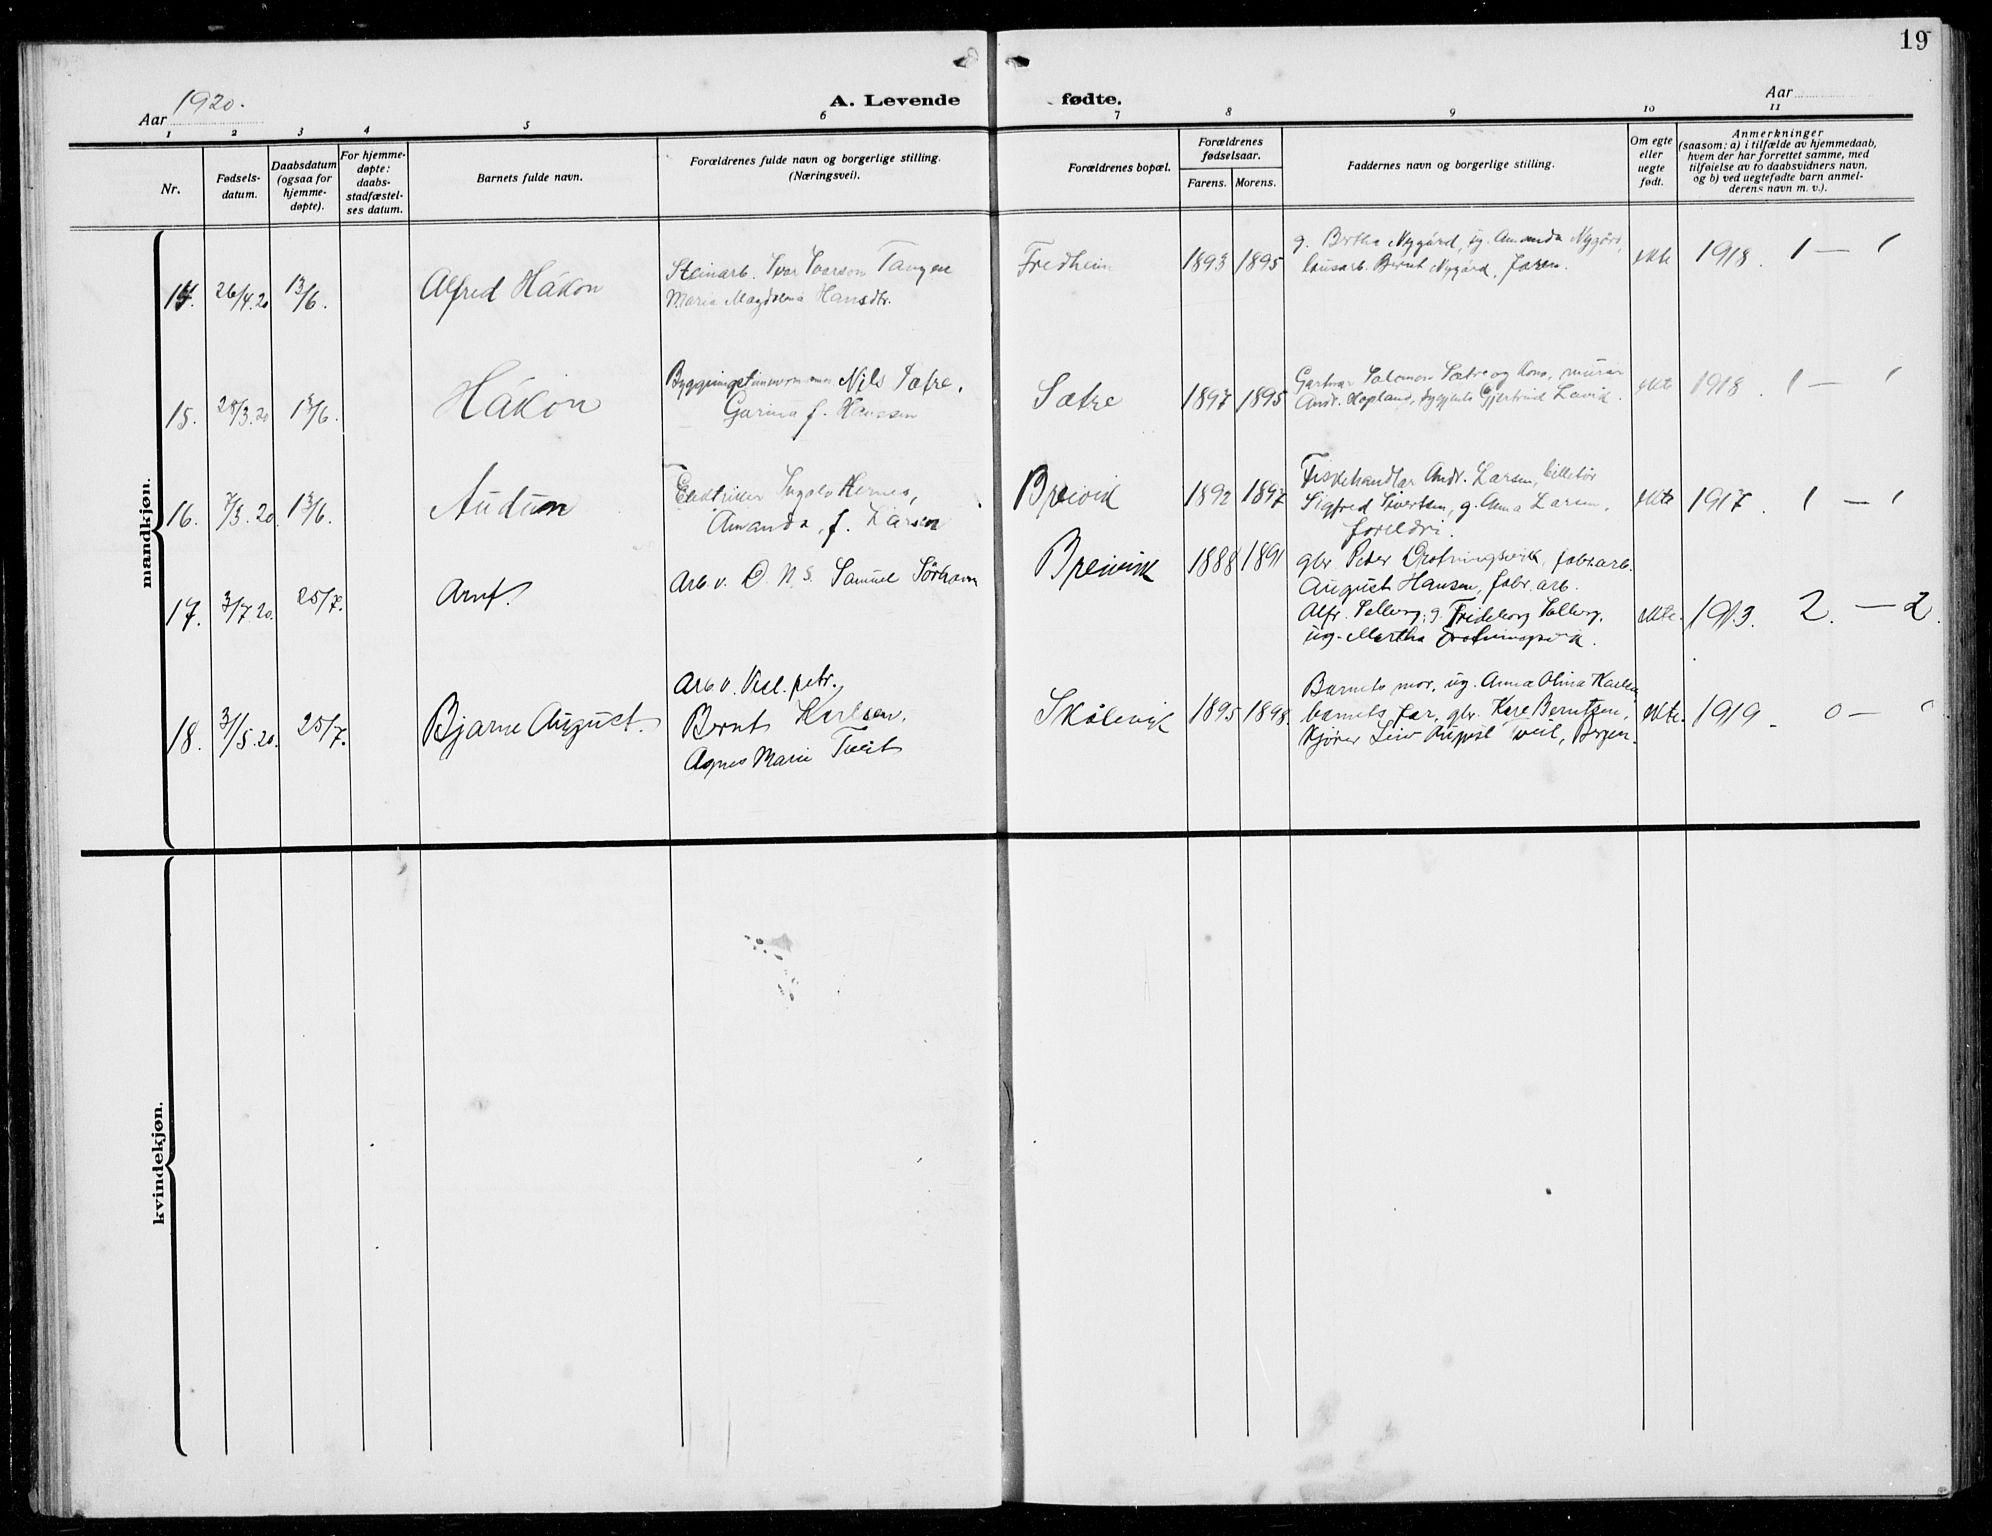 19
Aar 1920.
A. Levende fødte.
Aar
1 2 3 4 5 6 7 8 9 10 11
Nr.
Fødsels-
datum.
Daabsdatum
(ogsaa for
hjemme-
døpte).
For hjemme-
døpte:
daabs-
stadfæstel-
ses datum.
Barnets fulde navn.
Forældrenes fulde navn og borgerlige stilling.
(Næringsvei).
Forældrenes bopæl.
Forældrenes
fødselsaar.
Farens. Morens.
Faddernes navn og borgerlige stilling.
Om egte
eller
uegte
født.
Anmerkninger
(saasom: a) i tilfælde av hjemmedaab,
hvem der har forrettet samme, med
tilføielse av to daabsvidners navn,
og b) ved uegtefødte barn anmel-
derens navn m. v.).
mandkjøn.
14. 26/4.20 13/6. Alfred Håkon
Steinarb. Ivar Ivarson Tangen
Maria Magdalena Hansdtr.
Fredheim 1893 1895
g. Bertha Nygård, ug. Amanda Nygård,
lausarb. Bernt Nygård, faren.
ekte 1918. 1 — 1
15. 25/3.20 13/6. Håkon
Bygningstimmermann Nils Sætre.
Garina f. Hanssen
Sætre 1897 1895
Gartnar Salomon Sætre og kona, murar
Andr. Hopland, Gjertrud Leivik.
ekte 1918. 1 — 1
16. 7/3.20. 13/6. Audun
Ingolv Hernes,
Amanda, f. Larsen
Breivik 1892 1897
Fiskehandlar Andr. Larsen,
Sigfred Sivertsen, g. Anna Larsen.
foreldri.
ekte 1917. 1 — 1
17. 3/7 20. 25/7. Arnf.
Arb. v. D. N. S. Samuel
Breivik 1888 1891
gbr. Peter Drotningsvik, fabr.arb.
August Hansen, fabr. arb.
Alfr. Solberg, g. Frideborg Solberg,
ug. Martha Drotningsvik.
ekte. 1913. 2. — 2.
18. 31/5.20. 25/7. Bjarne August.
Arb. v. Vest. petr.
Bernt Karlsen.
Agnes Marie Tveit
Skålevik 1895 1898
Barnets mor, ug. Anna Olina Karlsen
barnets far, gbr. Kåre Berntzen,
kjører Leiv August Tveit, Bergen.
ekte. 1919. 0 — 0
kvindekjøn.